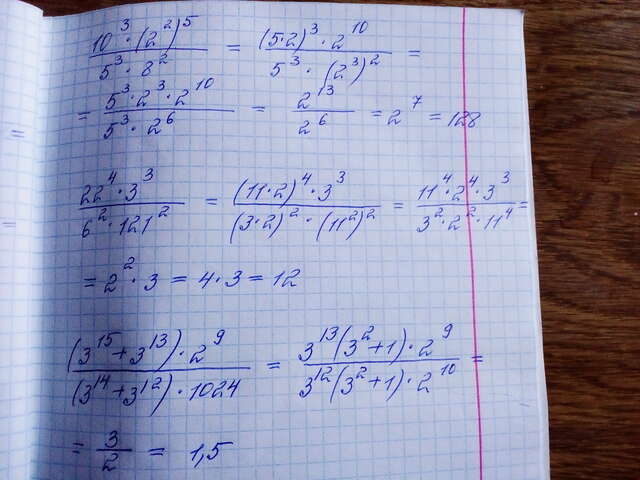 =
=
10³ · (2²)⁵ / 5³ · 8² = (5·2)³ · 2¹⁰ / 5³ · (2³)² =
= 5³ · 2³ · 2¹⁰ / 5³ · 2⁶ = 2¹³ / 2⁶ = 2⁷ = 128
22⁴ · 3³ / 6² · 121² = (11·2)⁴ · 3³ / (3·2)² · (11²)² = 11⁴ · 2⁴ · 3³ / 3² · 2² · 11⁴ =
= 2² · 3 = 4 · 3 = 12
(3¹⁵ + 3¹³) · 2⁹ / (3¹⁴ + 3¹²) · 1024 = 3¹³(3² + 1) · 2⁹ / 3¹²(3² + 1) · 2¹⁰ =
= 3 / 2 = 1,5